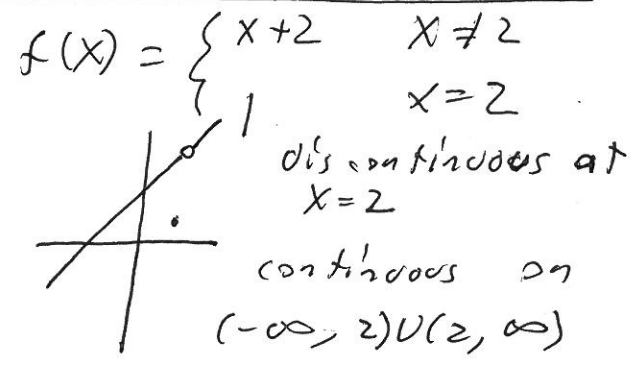 f(x) = { x+2 x ≠ 2
1 x = 2
discontinuous at
x = 2
continuous on
(-∞, 2)∪(2, ∞)